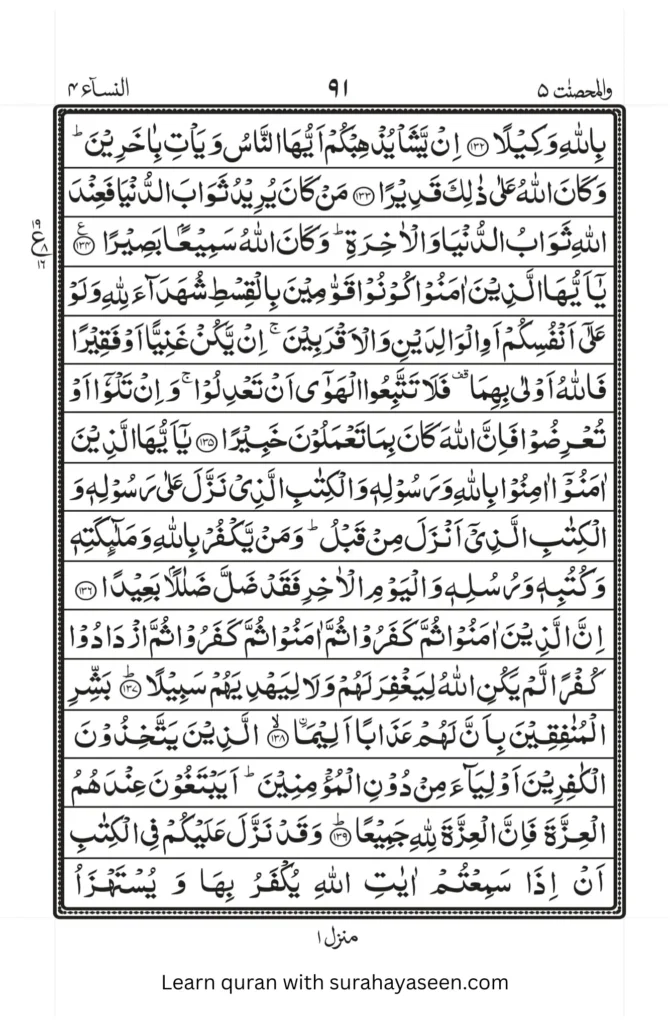 والمحصنت ٥ ٩١ النسآء ٤
بِاللّٰهِ وَكِيۡلًا ﴿۱۳۲﴾ اِنۡ يَّشَاۡ يُذۡهِبۡكُمۡ اَيُّهَا النَّاسُ وَ يَاۡتِ بِاٰخَرِيۡنَ ؕ
وَكَانَ اللّٰهُ عَلٰى ذٰلِكَ قَدِيۡرًا ﴿۱۳۳﴾ مَنۡ كَانَ يُرِيۡدُ ثَوَابَ الدُّنۡيَا فَعِنۡدَ
اللّٰهِ ثَوَابُ الدُّنۡيَا وَالۡاٰخِرَةِ ؕ وَكَانَ اللّٰهُ سَمِيۡعًۢا بَصِيۡرًا ﴿۱۳۴﴾ ع
١٩ ع ٨ ١٦
يٰۤاَيُّهَا الَّذِيۡنَ اٰمَنُوۡا كُوۡنُوۡا قَوَّامِيۡنَ بِالۡقِسۡطِ شُهَدَآءَ لِلّٰهِ وَلَوۡ
عَلٰٓى اَنۡفُسِكُمۡ اَوِ الۡوَالِدَيۡنِ وَالۡاَقۡرَبِيۡنَ ۚ اِنۡ يَّكُنۡ غَنِيًّا اَوۡ فَقِيۡرًا
فَاللّٰهُ اَوۡلٰى بِهِمَا قف فَلَا تَتَّبِعُوا الۡهَوٰٓى اَنۡ تَعۡدِلُوۡا ۚ وَاِنۡ تَلۡوٗۤا اَوۡ
تُعۡرِضُوۡا فَاِنَّ اللّٰهَ كَانَ بِمَا تَعۡمَلُوۡنَ خَبِيۡرًا ﴿۱۳۵﴾ يٰۤاَيُّهَا الَّذِيۡنَ
اٰمَنُوۡۤا اٰمِنُوۡا بِاللّٰهِ وَرَسُوۡلِهٖ وَالۡكِتٰبِ الَّذِىۡ نَزَّلَ عَلٰى رَسُوۡلِهٖ وَ
الۡكِتٰبِ الَّذِىۡۤ اَنۡزَلَ مِنۡ قَبۡلُ ؕ وَمَنۡ يَّكۡفُرۡ بِاللّٰهِ وَمَلٰٓئِكَتِهٖ
وَكُتُبِهٖ وَرُسُلِهٖ وَالۡيَوۡمِ الۡاٰخِرِ فَقَدۡ ضَلَّ ضَلٰلًاۢ بَعِيۡدًا ﴿۱۳۶﴾
اِنَّ الَّذِيۡنَ اٰمَنُوۡا ثُمَّ كَفَرُوۡا ثُمَّ اٰمَنُوۡا ثُمَّ كَفَرُوۡا ثُمَّ ازۡدَادُوۡا
كُفۡرًا لَّمۡ يَكُنِ اللّٰهُ لِيَغۡفِرَ لَهُمۡ وَلَا لِيَهۡدِيَهُمۡ سَبِيۡلًا ﴿۱۳۷﴾ؕ بَشِّرِ
الۡمُنٰفِقِيۡنَ بِاَنَّ لَهُمۡ عَذَابًا اَلِيۡمًاۙ ﴿۱۳۸﴾ الَّذِيۡنَ يَتَّخِذُوۡنَ
الۡكٰفِرِيۡنَ اَوۡلِيَآءَ مِنۡ دُوۡنِ الۡمُؤۡمِنِيۡنَ ؕ اَيَبۡتَغُوۡنَ عِنۡدَهُمُ
الۡعِزَّةَ فَاِنَّ الۡعِزَّةَ لِلّٰهِ جَمِيۡعًا ﴿۱۳۹﴾ؕ وَقَدۡ نَزَّلَ عَلَيۡكُمۡ فِى الۡكِتٰبِ
اَنۡ اِذَا سَمِعۡتُمۡ اٰيٰتِ اللّٰهِ يُكۡفَرُ بِهَا وَ يُسۡتَهۡزَاُ
منزل ١
Learn quran with surahayaseen.com